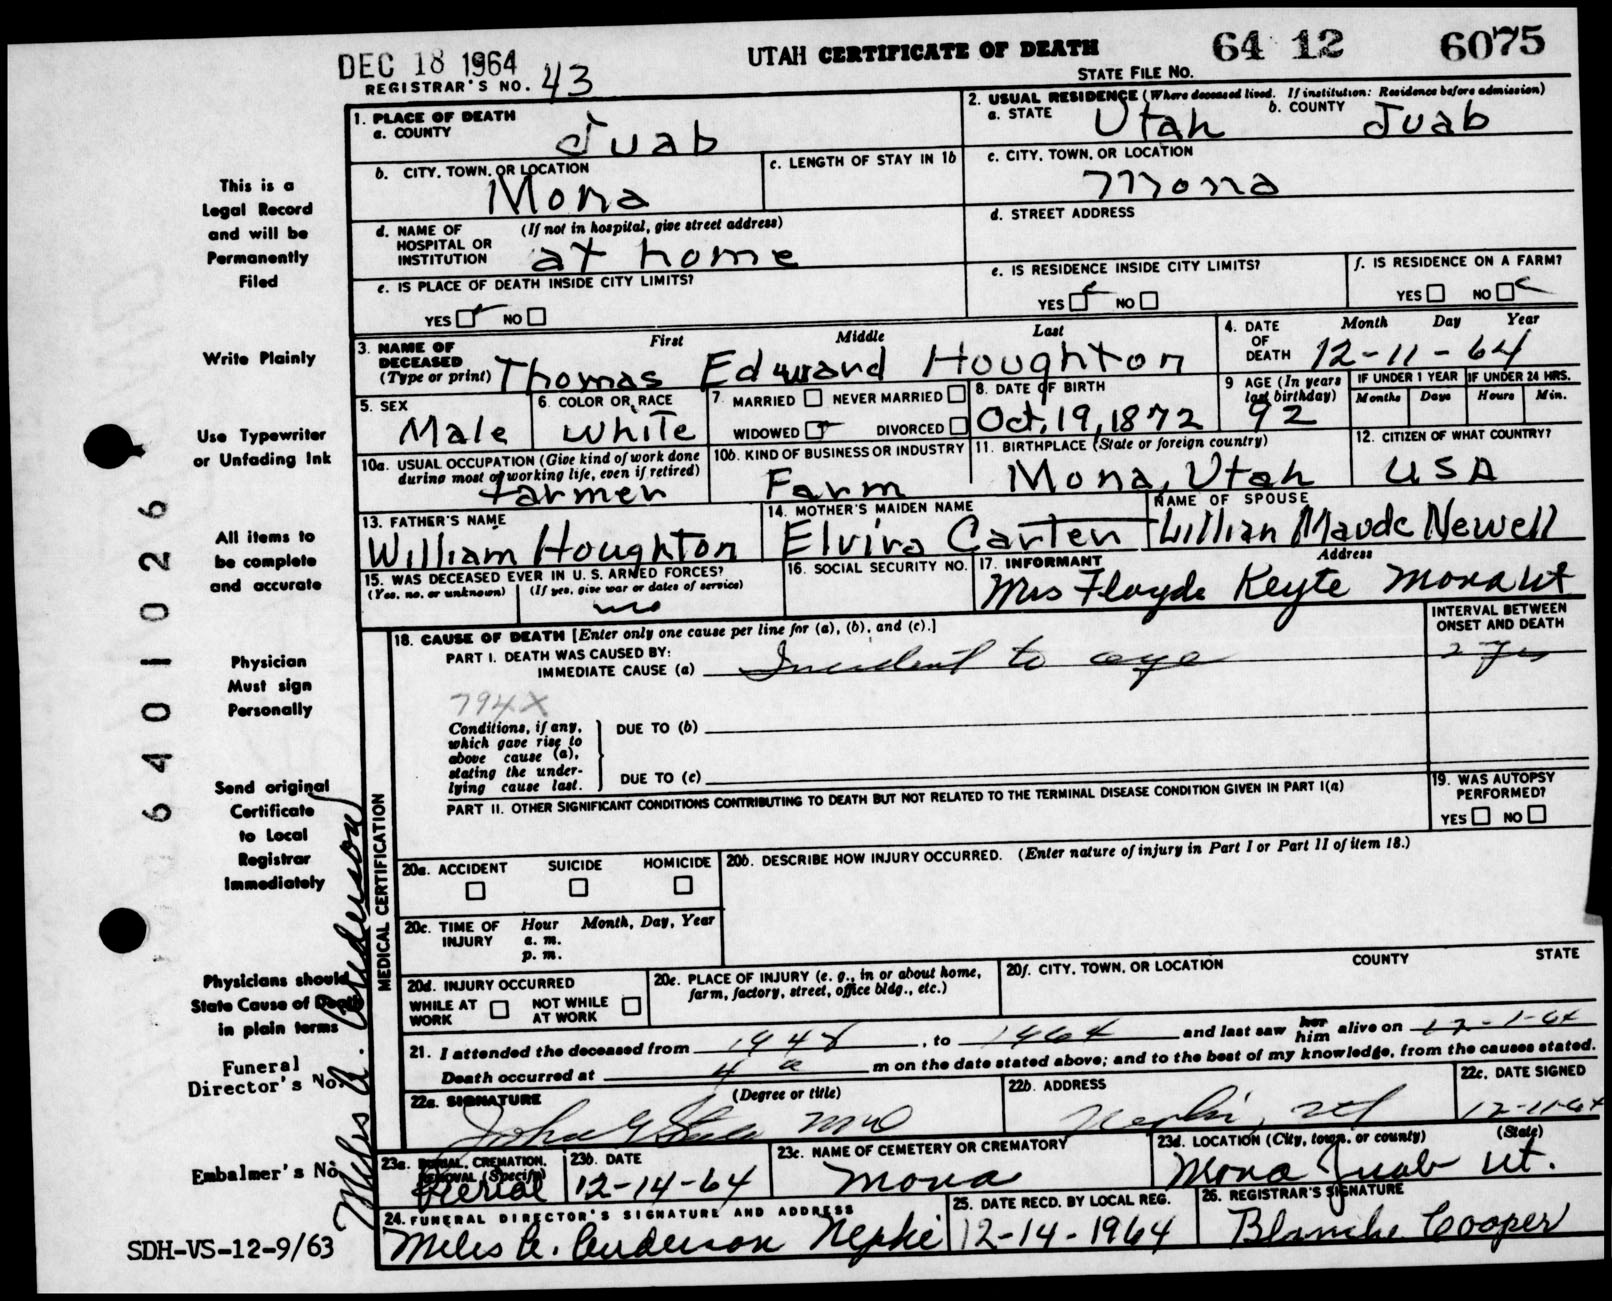 DEC 18 1964
UTAH CERTIFICATE OF DEATH
64 12 6075
REGISTRAR'S NO. 43
STATE FILE NO.
1. PLACE OF DEATH
a. COUNTY
Juab
2. USUAL RESIDENCE (Where deceased lived. If institution: Residence before admission)
a. STATE Utah b. COUNTY Juab
b. CITY, TOWN, OR LOCATION
Mona
c. LENGTH OF STAY IN 1b
c. CITY, TOWN, OR LOCATION
Mona
d. NAME OF HOSPITAL OR INSTITUTION (If not in hospital, give street address)
at home
d. STREET ADDRESS
e. IS PLACE OF DEATH INSIDE CITY LIMITS?
YES NO
e. IS RESIDENCE INSIDE CITY LIMITS?
YES NO
f. IS RESIDENCE ON A FARM?
YES NO
3. NAME OF DECEASED (Type or print)
First Middle Last
Thomas Edward Houghton
4. DATE OF DEATH
Month Day Year
12-11-64
5. SEX
Male
6. COLOR OR RACE
White
7. MARRIED NEVER MARRIED
WIDOWED DIVORCED
8. DATE OF BIRTH
Oct, 19, 1872
9 AGE (In years last birthday)
92
IF UNDER 1 YEAR
Months Days
IF UNDER 24 HRS.
Hours Min.
10a. USUAL OCCUPATION (Give kind of work done during most of working life, even if retired)
farmer
10b. KIND OF BUSINESS OR INDUSTRY
Farm
11. BIRTHPLACE (State or foreign country)
Mona, Utah
12. CITIZEN OF WHAT COUNTRY?
USA
13. FATHER'S NAME
William Houghton
14. MOTHER'S MAIDEN NAME
Elvira Carter
NAME OF SPOUSE
Lillian Maude Newell
15. WAS DECEASED EVER IN U.S. ARMED FORCES?
(Yes, no, or unknown) (If yes, give war or dates of service)
no
16. SOCIAL SECURITY NO.
17. INFORMANT Address
Mrs Floyde Keyte Mona Ut
18. CAUSE OF DEATH [Enter only one cause per line for (a), (b), and (c).]
INTERVAL BETWEEN ONSET AND DEATH
PART I. DEATH WAS CAUSED BY:
IMMEDIATE CAUSE (a) Incident to age
2 yrs
794X
Conditions, if any, which gave rise to above cause (a), stating the underlying cause last.
DUE TO (b)
DUE TO (c)
PART II. OTHER SIGNIFICANT CONDITIONS CONTRIBUTING TO DEATH BUT NOT RELATED TO THE TERMINAL DISEASE CONDITION GIVEN IN PART I(a)
19. WAS AUTOPSY PERFORMED?
YES NO
MEDICAL CERTIFICATION
20a. ACCIDENT SUICIDE HOMICIDE
20b. DESCRIBE HOW INJURY OCCURRED. (Enter nature of injury in Part I or Part II of item 18.)
20c. TIME OF INJURY
Hour Month, Day, Year
a. m.
p. m.
20d. INJURY OCCURRED
WHILE AT WORK NOT WHILE AT WORK
20e. PLACE OF INJURY (e. g., in or about home, farm, factory, street, office bldg., etc.)
20f. CITY, TOWN, OR LOCATION COUNTY STATE
21. I attended the deceased from 1948, to 1964 and last saw her him alive on 12-1-64
Death occurred at 4 a m on the date stated above; and to the best of my knowledge, from the causes stated.
22a. SIGNATURE (Degree or title)
MD
22b. ADDRESS
Nephi, Ut
22c. DATE SIGNED
12-11-64
23a. BURIAL, CREMATION, REMOVAL (Specify)
Burial
23b. DATE
12-14-64
23c. NAME OF CEMETERY OR CREMATORY
Mona
23d. LOCATION (City, town, or county) (State)
Mona Juab Ut.
24. FUNERAL DIRECTOR'S SIGNATURE AND ADDRESS
Miles A. Anderson Nephi
25. DATE RECD. BY LOCAL REG.
12-14-1964
26. REGISTRAR'S SIGNATURE
Blanche Cooper
This is a
Legal Record
and will be
Permanently
Filed
Write Plainly
Use Typewriter
or Unfading Ink
All items to
be complete
and accurate
Physician
Must sign
Personally
Send original
Certificate
to Local
Registrar
Immediately
Physicians should
State Cause of Death
in plain terms
Funeral
Director's No.
Embalmer's No.
Miles A. Anderson
6401026
SDH-VS-12-9/63